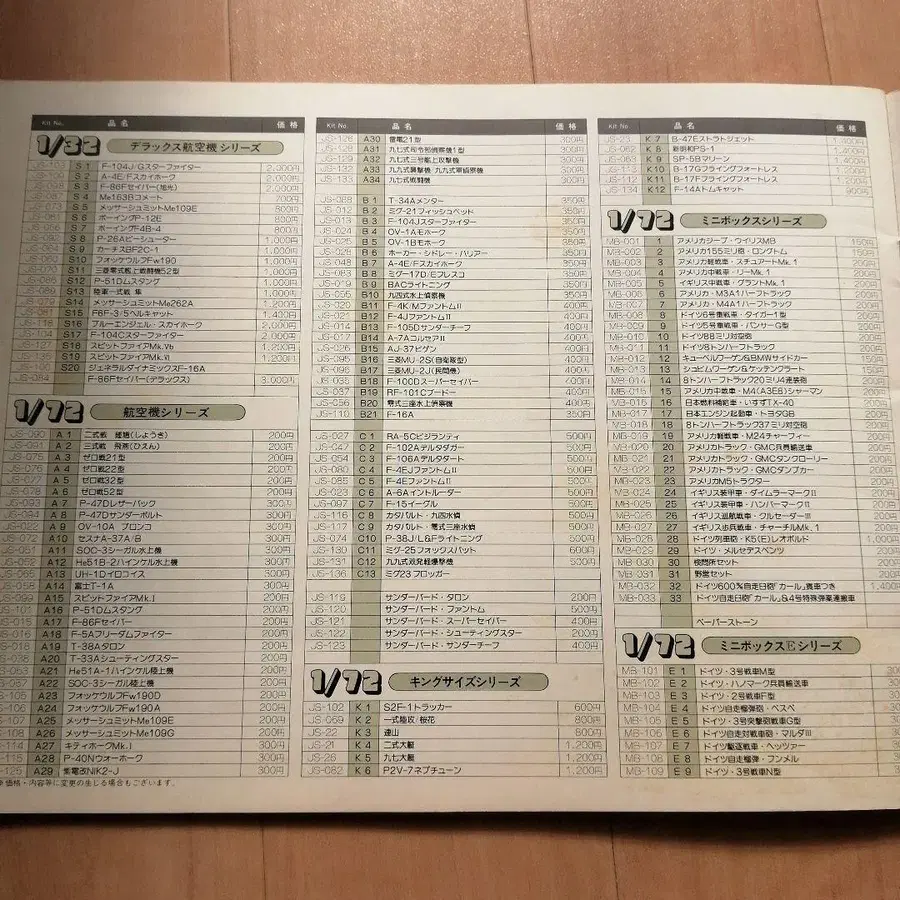 Kit No. 品名 価格
1/32 デラックス航空機シリーズ
S 1 F-104J/Gスターファイター 2,000円
S 2 A-4E/Fスカイホーク
S 3 F-86Fセイバー(旭光) 2,000円
S 4 Me163Bコメート 700円
S 5 メッサーシュミットMe109E 800円
S 6 ボーイングP-12E 800円
S 7 ボーイングF4B-4 800円
S 8 P-26Aピーシューター 1,000円
S 9 カーチスBF2C-1 1,000円
S10 フォッケウルフFw190 1,000円
S11 三菱零式艦上戦闘機52型 1,000円
S12 P-51Dムスタング 1,000円
S13 陸軍一式戦 隼 1,000円
S14 メッサーシュミットMe262A 1,200円
S15 F6F-3/5ヘルキャット 1,400円
S16 ブルーエンジェル・スカイホーク 2,000円
S17 F-104Cスターファイター 2,000円
S18 スピットファイアMk.Vb 1,200円
S19 スピットファイアMk.VI 1,200円
S20 ジェネラルダイナミックスF-16A
JS-084 F-86Fセイバー(デラックス) 3,000円
1/72 航空機シリーズ
JS-090 A 1 二式戦 鍾馗(しょうき) 200円
JS-091 A 2 三式戦 飛燕(ひえん) 200円
JS-075 A 3 ゼロ戦21型 200円
JS-076 A 4 ゼロ戦22型 200円
A 5 ゼロ戦32型 200円
JS-078 A 6 ゼロ戦52型 200円
A 7 P-47Dレザーバック 300円
A 8 P-47Dサンダーボルト 300円
A 9 OV-10A ブロンコ 300円
A10 セスナA-37A/B 300円
A11 SOC-3シーガル水上機 300円
A12 He51B-2ハインケル水上機 300円
A13 UH-1Dイロコイス 300円
A14 富士T-1A 300円
A15 スピットファイアMk.I 200円
A16 P-51Dムスタング 200円
A17 F-86Fセイバー 200円
A18 F-5Aフリーダムファイター 200円
A19 T-38Aタロン 200円
A20 T-33Aシューティングスター 200円
A21 He51A-1ハインケル陸上機 200円
A22 SOC-3シーガル陸上機 200円
A23 フォッケウルフFw190D 200円
A24 フォッケウルフFw190A 200円
A25 メッサーシュミットMe109E 200円
A26 メッサーシュミットMe109G 200円
A27 キティホークMk.I 300円
A28 P-40Nウォーホーク 300円
A29 紫電改NIK2-J 300円
価格・内容等に変更の生じる場合もございます。
Kit No. 品名 価格
JS-128 A30 雷電21型 300円
A31 九七式司令部偵察機1型 300円
JS-129 A32 九七式三号艦上攻撃機 300円
JS-132 A33 九九式襲撃機/九九式軍偵察機 300円
JS-133 A34 九七式戦闘機 300円
JS-088 B 1 T-34Aメンター 350円
JS-012 B 2 ミグ-21フィッシュベッド 350円
JS-013 B 3 F-104Jスターファイター 350円
JS-024 B 4 OV-1Aモホーク 350円
JS-025 B 5 OV-1Bモホーク 350円
B 6 ホーカー・シドレー・ハリアー 350円
JS-048 B 7 A-4E/Fスカイホーク 350円
B 8 ミグ-17D/Eフレスコ 350円
JS-019 B 9 BACライトニング 350円
B10 九四式水上偵察機 350円
JS-020 B11 F-4K/MファントムII 400円
JS-021 B12 F-4JファントムII 400円
JS-014 B13 F-105Dサンダーチーフ 400円
B14 A-7AコルセアII 400円
B15 AJ-37ビゲン 400円
JS-095 B16 三菱MU-2S(自衛隊型) 400円
JS-096 B17 三菱MU-2J(民間機) 400円
B18 F-100Dスーパーセイバー 400円
JS-057 B19 RF-101Cブードー 400円
JS-056 B20 零式三座水上偵察機 400円
JS-110 B21 F-16A 350円
JS-027 C 1 RA-5Cビジランティ 500円
C 2 F-102Aデルタダガー 500円
C 3 F-106Aデルタダート 500円
JS-080 C 4 F-4EJファントムII 500円
JS-085 C 5 F-4EファントムII 500円
JS-023 C 6 A-6Aイントルーダー 500円
JS-097 C 7 F-15イーグル 500円
JS-116 C 8 カタパルト・九四水偵 500円
JS-117 C 9 カタパルト・零式三座水偵 500円
JS-074 C10 P-38J/L&Fライトニング 500円
JS-130 C11 ミグ-25フォックスバット 600円
JS-131 C12 九九式双発軽爆撃機 500円
JS-136 C13 ミグ23フロッガー
JS-119 サンダーバード・タロン 200円
JS-120 サンダーバード・ファントム 500円
JS-121 サンダーバード・スーパーセイバー 400円
JS-122 サンダーバード・シューティングスター 200円
JS-123 サンダーバード・サンダーチーフ 400円
1/72 キングサイズシリーズ
JS-102 K 1 S2F-1トラッカー 600円
JS-069 K 2 一式陸攻/桜花 800円
JS-22 K 3 連山 800円
JS-21 K 4 二式大艇 1,200円
JS-25 K 5 九七大艇 1,200円
JS-062 K 6 P2V-7ネプチューン 1,200円
Kit No. 品名 価格
JS-23 K 7 B-47Eストラトジェット 1,400円
JS-062 K 8 新明和PS-1 1,400円
JS-063 K 9 SP-5Bマリーン 1,400円
JS-113 K10 B-17Gフライングフォートレス 1,200円
JS-112 K11 B-17Fフライングフォートレス 1,200円
JS-134 K12 F-14Aトムキャット 900円
1/72 ミニボックスシリーズ
MB-001 1 アメリカジープ・ウイリスMB 150円
MB-002 2 アメリカ155ミリ砲・ロングトム 150円
MB-003 3 アメリカ軽戦車・スチュアートMk.1 200円
MB-004 4 アメリカ中戦車・リーMk.1 200円
MB-005 5 イギリス中戦車・グラントMk.1 200円
MB-006 6 アメリカ・M3A1ハーフトラック 200円
MB-007 7 アメリカ・M4A1ハーフトラック 200円
MB-008 8 ドイツ6号重戦車・タイガー1型 200円
MB-009 9 ドイツ5号重戦車・パンサーG型 200円
MB-010 10 ドイツ88ミリ対空砲 200円
MB-011 11 ドイツ8トンハーフトラック 200円
MB-012 12 キューベルワーゲン&BMWサイドカー 150円
MB-013 13 シュビムワーゲン&ケッテンクラート 150円
MB-014 14 8トンハーフトラック20ミリ4連装砲 200円
MB-015 15 アメリカ中戦車・M4(A3E8)シャーマン 200円
16 日本燃料補給車・いすゞTX-40 200円
MB-017 17 日本エンジン起動車・トヨタGB 200円
MB-018 18 8トンハーフトラック37ミリ対空砲 200円
MB-019 19 アメリカ軽戦車・M24チャーフィー 200円
MB-020 20 アメリカトラック・GMC兵員輸送車 200円
MB-021 21 アメリカトラック・GMCタンクローリー 200円
MB-022 22 アメリカトラック・GMCダンプカー 200円
MB-023 23 アメリカM5トラクター 200円
MB-024 24 イギリス装甲車・ダイムラーマークII 200円
MB-025 25 イギリス装甲車・ハンバーマークII 200円
MB-026 26 イギリス巡航戦車・クルセーダーIII 200円
MB-027 27 イギリス歩兵戦車・チャーチルMk.1 200円
MB-028 28 ドイツ列車砲・K5(E)レオポルド 1,000円
MB-029 29 ドイツ・メルセデスベンツ 200円
MB-030 30 検問所セット 200円
MB-031 31 野営セット 200円
MB-032 32 ドイツ600%自走臼砲"カール"貨車つき 1,400円
MB-033 33 ドイツ自走臼砲"カール"&4号特殊弾薬運搬車
ペーパーストーン
1/72 ミニボックスEシリーズ
MB-101 E 1 ドイツ・3号戦車M型
MB-102 E 2 ドイツ・ハノマーク兵員輸送車
MB-103 E 3 ドイツ・2号戦車F型
MB-104 E 4 ドイツ自走榴弾砲・ベスペ
MB-105 E 5 ドイツ・3号突撃砲戦車G型
MB-106 E 6 ドイツ自走対戦車砲・マルダIII
MB-107 E 7 ドイツ駆逐戦車・ヘッツァー
MB-108 E 8 ドイツ自走榴弾・フンメル
MB-109 E 9 ドイツ・3号戦車N型